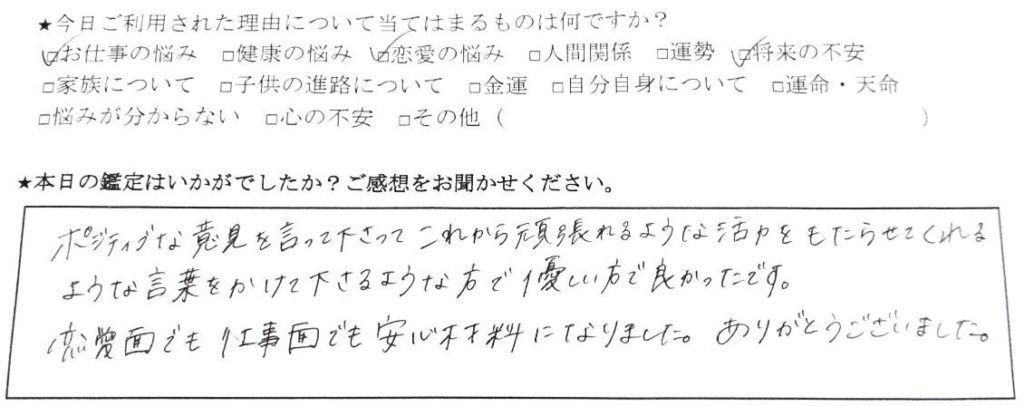 ★今日ご利用された理由について当てはまるものは何ですか？
☑お仕事の悩み □健康の悩み ☑恋愛の悩み □人間関係 □運勢 ☑将来の不安
□家族について □子供の進路について □金運 □自分自身について □運命・天命
□悩みが分からない □心の不安 □その他（ ）
★本日の鑑定はいかがでしたか？ご感想をお聞かせください。
ポジティブな意見を言って下さってこれから頑張れるような活力をもたらせてくれる
ような言葉をかけて下さるような方で優しい方で良かったです。
恋愛面でも仕事面でも安心材料になりました。ありがとうございました。